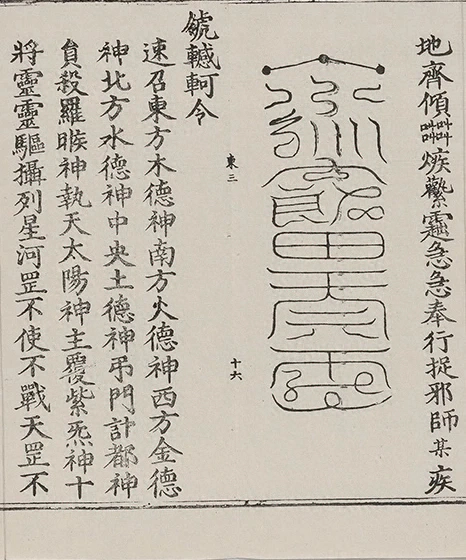 地齊傾𠱠𠱠燬虀靋急急奉行捉邪師某疾
東三
十六
虢轗軻令
速召東方木德神南方火德神西方金德
神北方水德神中央土德神弔門計都神
負殺羅睺神執天太陽神主覆紫炁神十
將靈靈驅攝列星河罡不使不戰天罡不